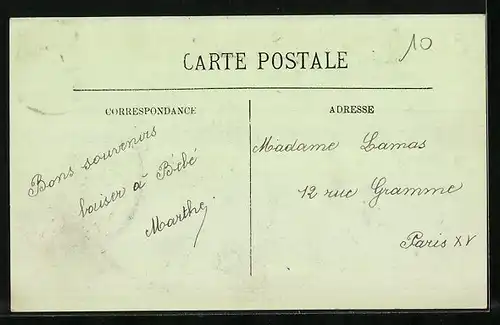 10
CARTE POSTALE
CORRESPONDANCE
Bons souvenirs
baiser à Bébé
Marthe
ADRESSE
Madame Lamas
12 rue Gramme
Paris XV